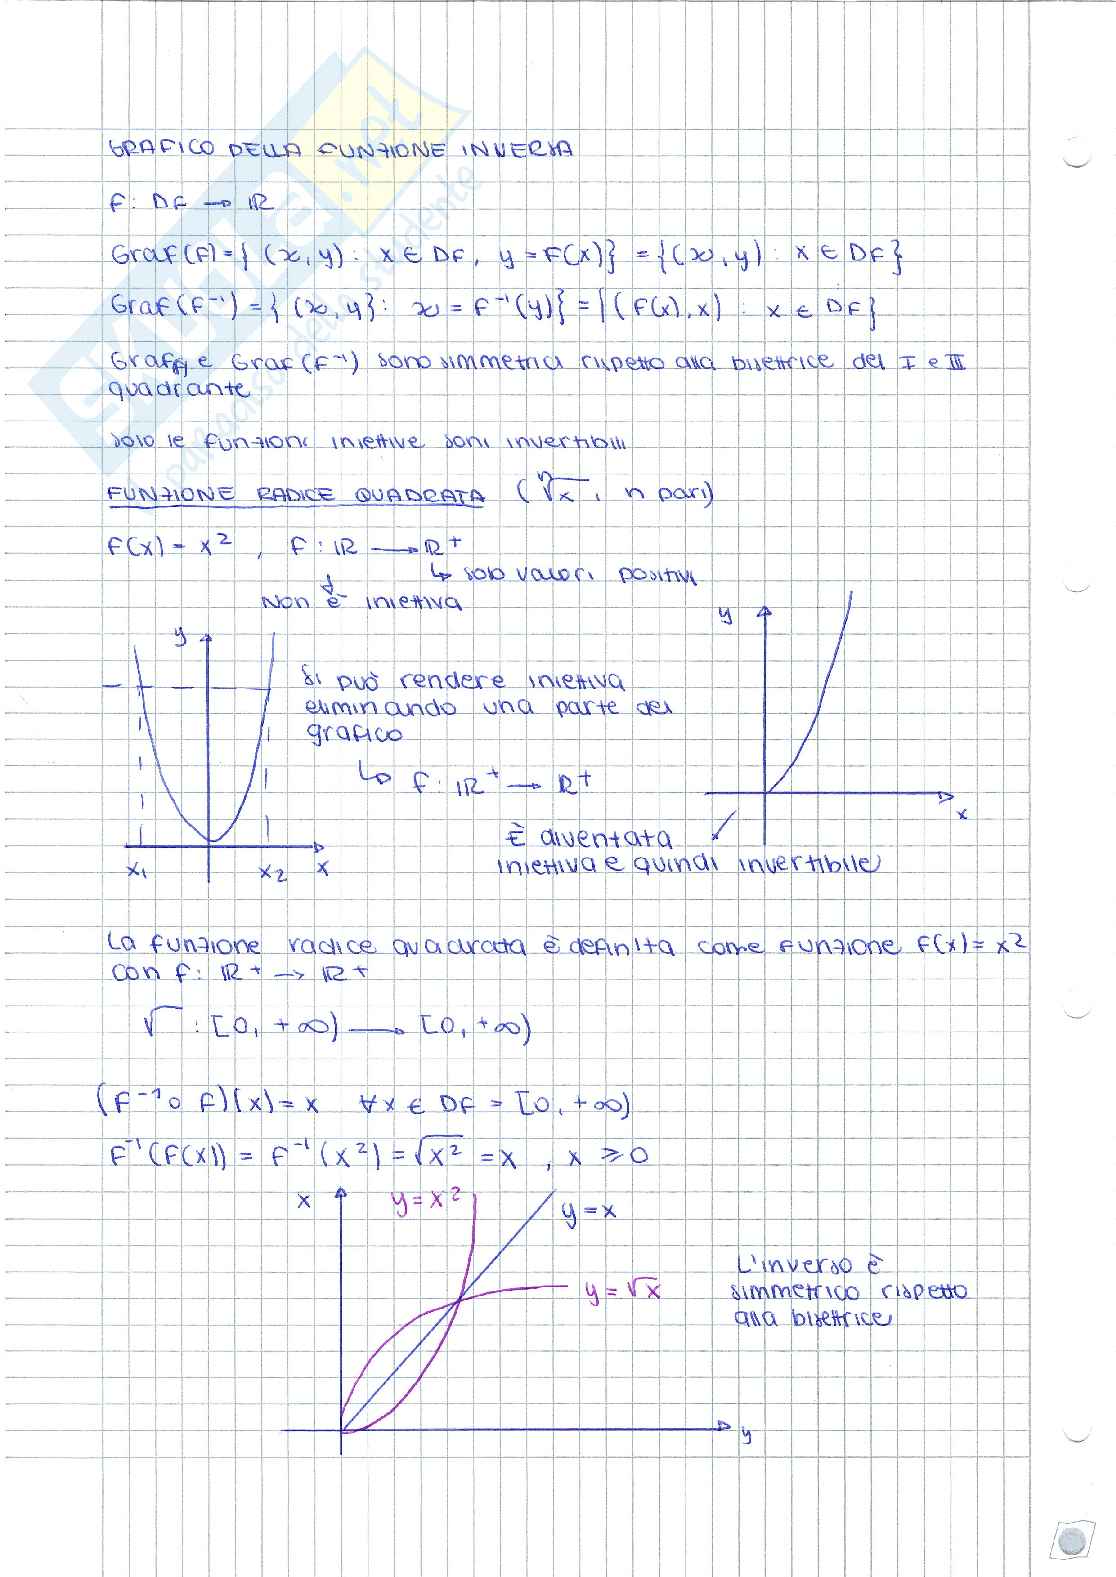 GRAFICO DELLA FUNZIONE INVERSA
f: Df → ℝ
Graf(f)={ (x,y): x ∈ Df, y = f(x)} = {(x,y): x ∈ Df}
Graf(f⁻¹)={ (x,y}: x = f⁻¹(y)} = {(f(x),x) : x ∈ Df}
Graf(f) e Graf(f⁻¹) sono simmetrici rispetto alla bisettrice del I e III
quadrante
solo le funzioni iniettive soni invertibili
FUNZIONE RADICE QUADRATA (ⁿ√x, n pari)
f(x) = x², f: ℝ → ℝ⁺
↳ solo valori positivi
↓
Non è iniettiva
y
x₁ x₂ x
Si può rendere iniettiva
eliminando una parte del
grafico
↳ f: ℝ⁺ → ℝ⁺
y
x
È diventata
iniettiva e quindi invertibile
La funzione radice quadrata è definita come funzione f(x) = x²
con f: ℝ⁺ → ℝ⁺
√ : [0, +∞) → [0, +∞)
(f⁻¹ o f)(x) = x ∀x ∈ Df = [0, +∞)
f⁻¹(f(x)) = f⁻¹(x²) = √x² = x , x ≥ 0
x
y = x²
y = x
y = √x
y
L'inverso è
simmetrico rispetto
alla bisettrice